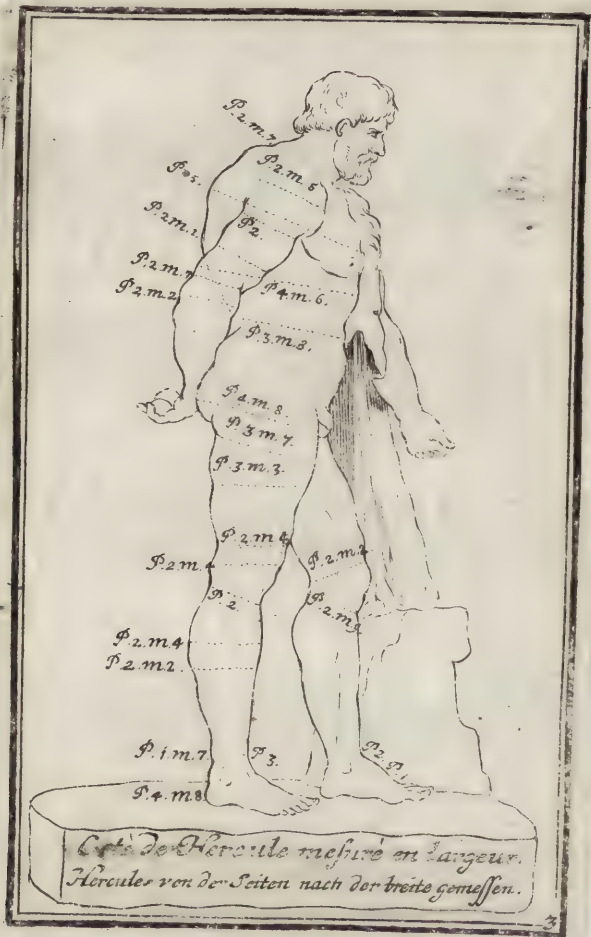 P. 2. m. 7.
P. 2. m. 5
P. 5.
P. 2 m. 1
P 2.
P. 2. m.
P. 2. m. 2
P. 4. m. 6.
P. 3. m. 8.
P. 4. m. 8
P. 3 m. 7
P. 3. m. 3.
P. 2. m. 4
P. 2. m. 2
P. 2. m. 4
P. 2
P. 2. m. 9
P. 2. m. 4
P. 2. m. 2.
P. 1. m. 7
P 3.
P 2.
P. 4. m. 8
Coté de Hercule mesuré en largeur.
Hercules von der Seiten nach der breite gemessen.
3